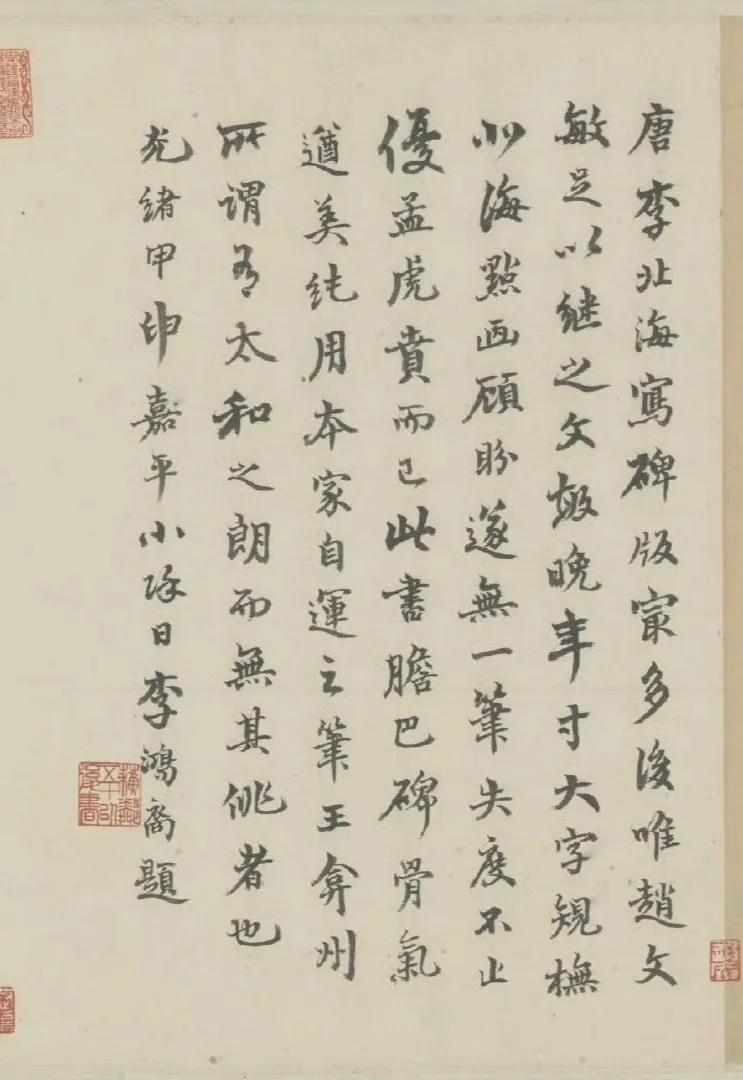 唐李北海寫碑版寂多後唯趙文
敏足以継之文敏晚年寸大字規橅
北海點画顧盼遂無一筆失度不止
優孟虎賁而已此書膽巴碑骨氣
遒美純用本家自運之筆王弇州
所謂有太和之朗而無其佻者也
光緒甲申嘉平小除日李鴻裔題